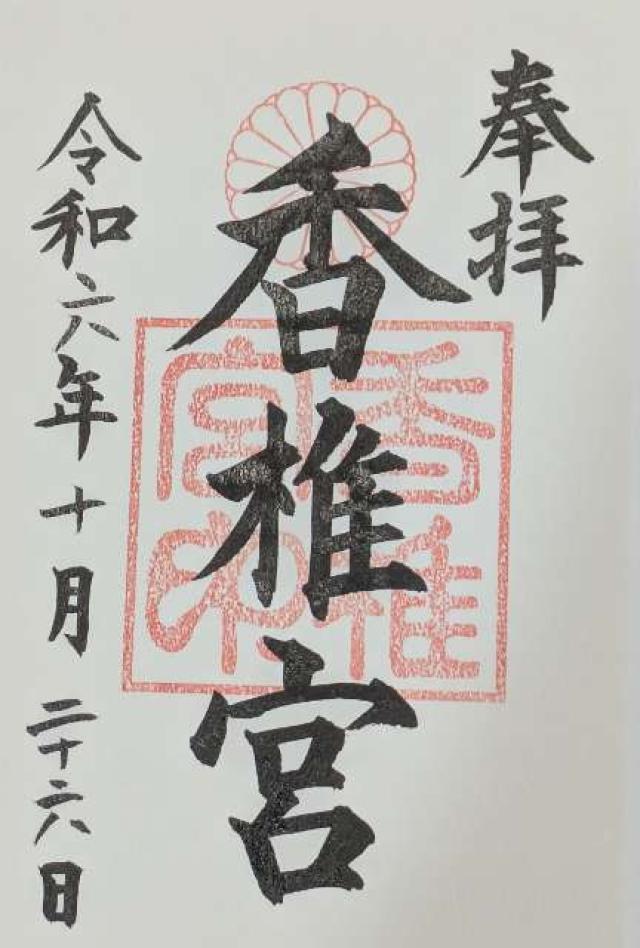 奉拝
香椎宮
令和六年十月二十六日
香椎宮印